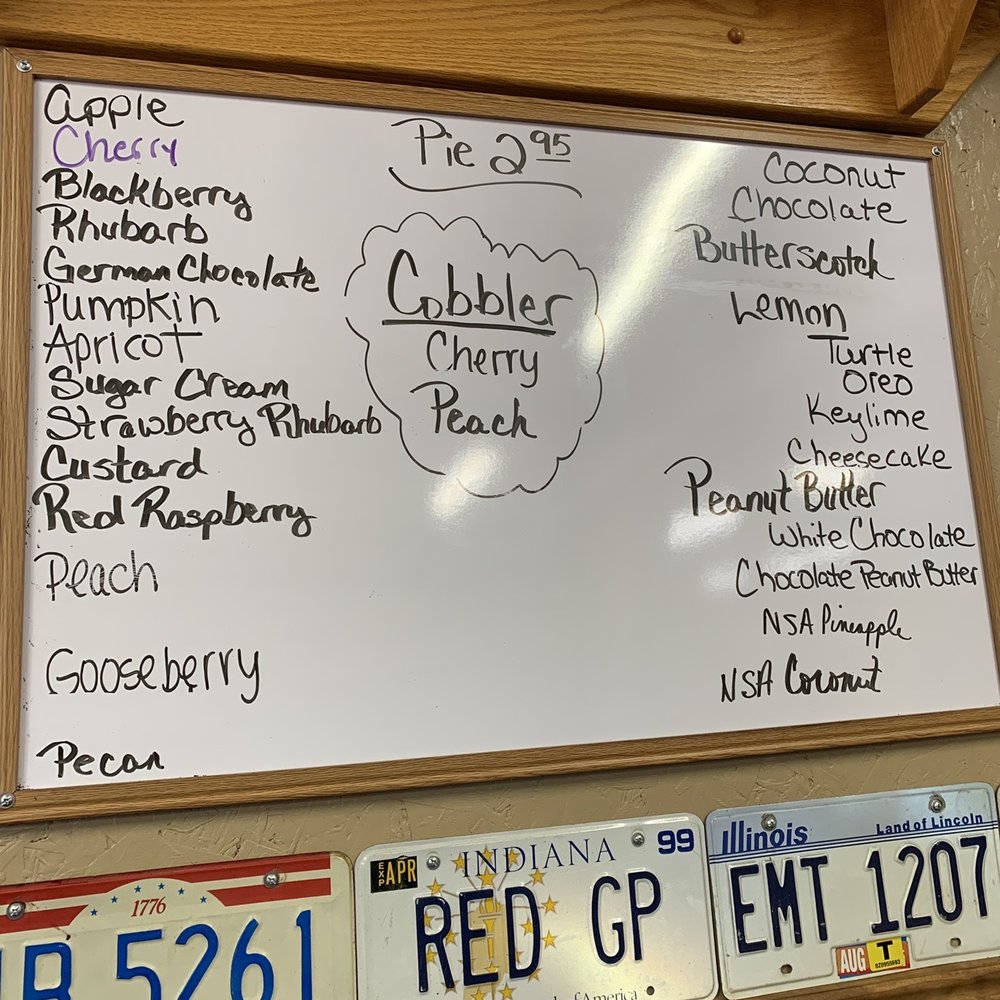 Apple
Cherry
Blackberry
Rhubarb
German Chocolate
Pumpkin
Apricot
Sugar Cream
Strawberry Rhubarb
Custard
Red Raspberry
Peach
Gooseberry
Pecan
Pie 2 95
Cobbler
Cherry
Peach
Coconut
Chocolate
Butterscotch
Lemon
Turtle
Oreo
Keylime
Cheesecake
Peanut Butter
White Chocolate
Chocolate Peanut Butter
NSA Pineapple
NSA Coconut
1776
5261
EXP APR
INDIANA
99
RED GP
of America
Illinois
Land of Lincoln
EMT 1207
AUG T